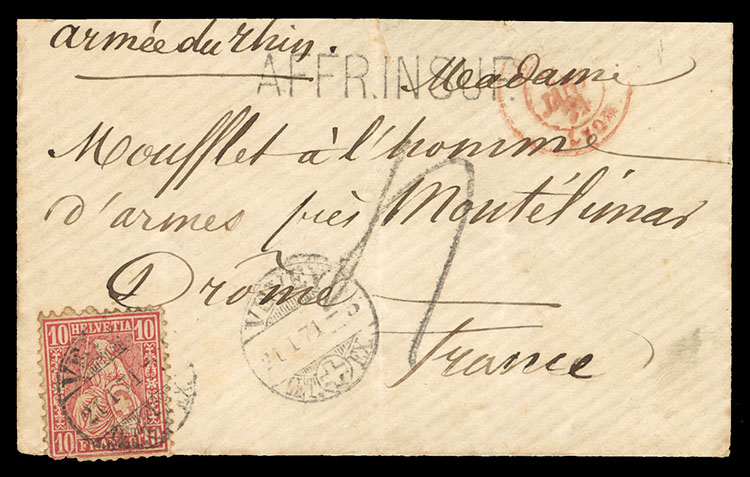 armée du rhin.
AFFR.INSUF.
Madame
Moufflet à l'homme
d'armes près Montélimar
Drôme
France
VEVEY
21 I 71 – 8
LYON
10 HELVETIA 10
10 FRANCO 10